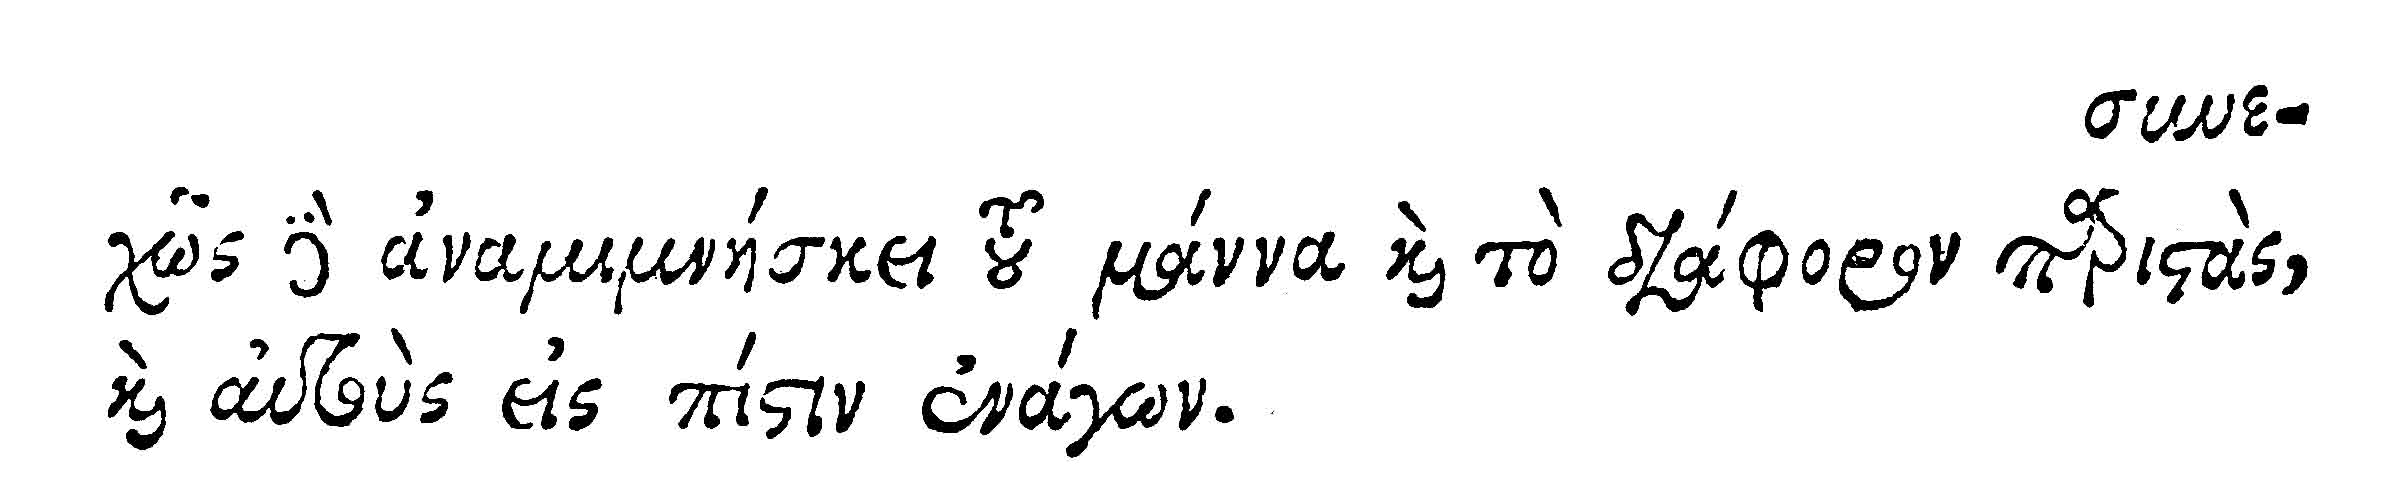 συνε-
χῶς δὲ ἀναμιμνήσκει τοῦ μάννα ϗ̀ τὸ διάφορον παριστὰς,
ϗ̀ αὐτοὺς εἰς πίστιν ἐνάγων.